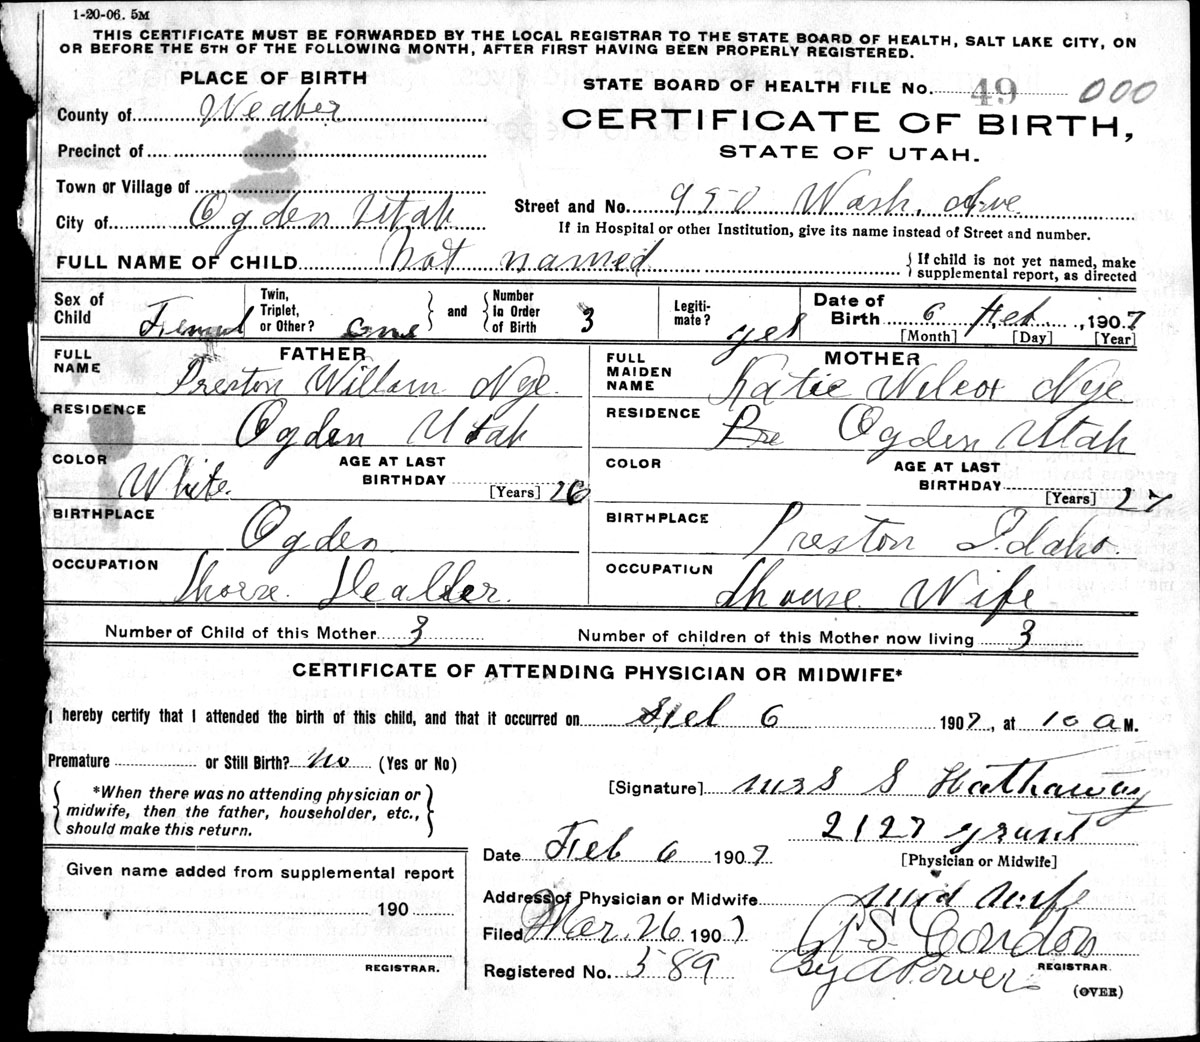 1-20-06. 5M
THIS CERTIFICATE MUST BE FORWARDED BY THE LOCAL REGISTRAR TO THE STATE BOARD OF HEALTH, SALT LAKE CITY, ON
OR BEFORE THE 5TH OF THE FOLLOWING MONTH, AFTER FIRST HAVING BEEN PROPERLY REGISTERED.
PLACE OF BIRTH
STATE BOARD OF HEALTH FILE No. 49 000
County of Weaber
CERTIFICATE OF BIRTH,
Precinct of
STATE OF UTAH.
Town or Village of
Street and No. 950 Wash. Ave.
City of Ogden Utah
If in Hospital or other Institution, give its name instead of Street and number.
FULL NAME OF CHILD Not named
{ If child is not yet named, make
supplemental report, as directed
Sex of Child Femal
Twin, Triplet, or Other? one
and
Number In Order of Birth 3
Legiti-mate? yes
Date of Birth 6 Feb., 1907
[Month] [Day] [Year]
FATHER
FULL NAME Preston Willam Nye.
MOTHER
FULL MAIDEN NAME Katie Wilcox Nye.
RESIDENCE Ogden Utah
RESIDENCE Pre Ogden Utah
COLOR White.
AGE AT LAST BIRTHDAY [Years] 26
COLOR
AGE AT LAST BIRTHDAY [Years] 27
BIRTHPLACE Ogden.
BIRTHPLACE Preston Idaho.
OCCUPATION Horse. Dealder.
OCCUPATION House Wife
Number of Child of this Mother 3
Number of children of this Mother now living 3
CERTIFICATE OF ATTENDING PHYSICIAN OR MIDWIFE*
I hereby certify that I attended the birth of this child, and that it occurred on Feb 6 1907, at 10 a M.
Premature or Still Birth? No (Yes or No)
*When there was no attending physician or
midwife, then the father, householder, etc.,
should make this return.
[Signature] Mrs S Hathaway
2127 Grant
Date Feb 6 1907
[Physician or Midwife]
Given name added from supplemental report
190
REGISTRAR.
Address of Physician or Midwife Mid wife
Filed Mar. 26 1907
P.S. Condon
Registered No. 589
By A Power.
REGISTRAR.
(OVER)